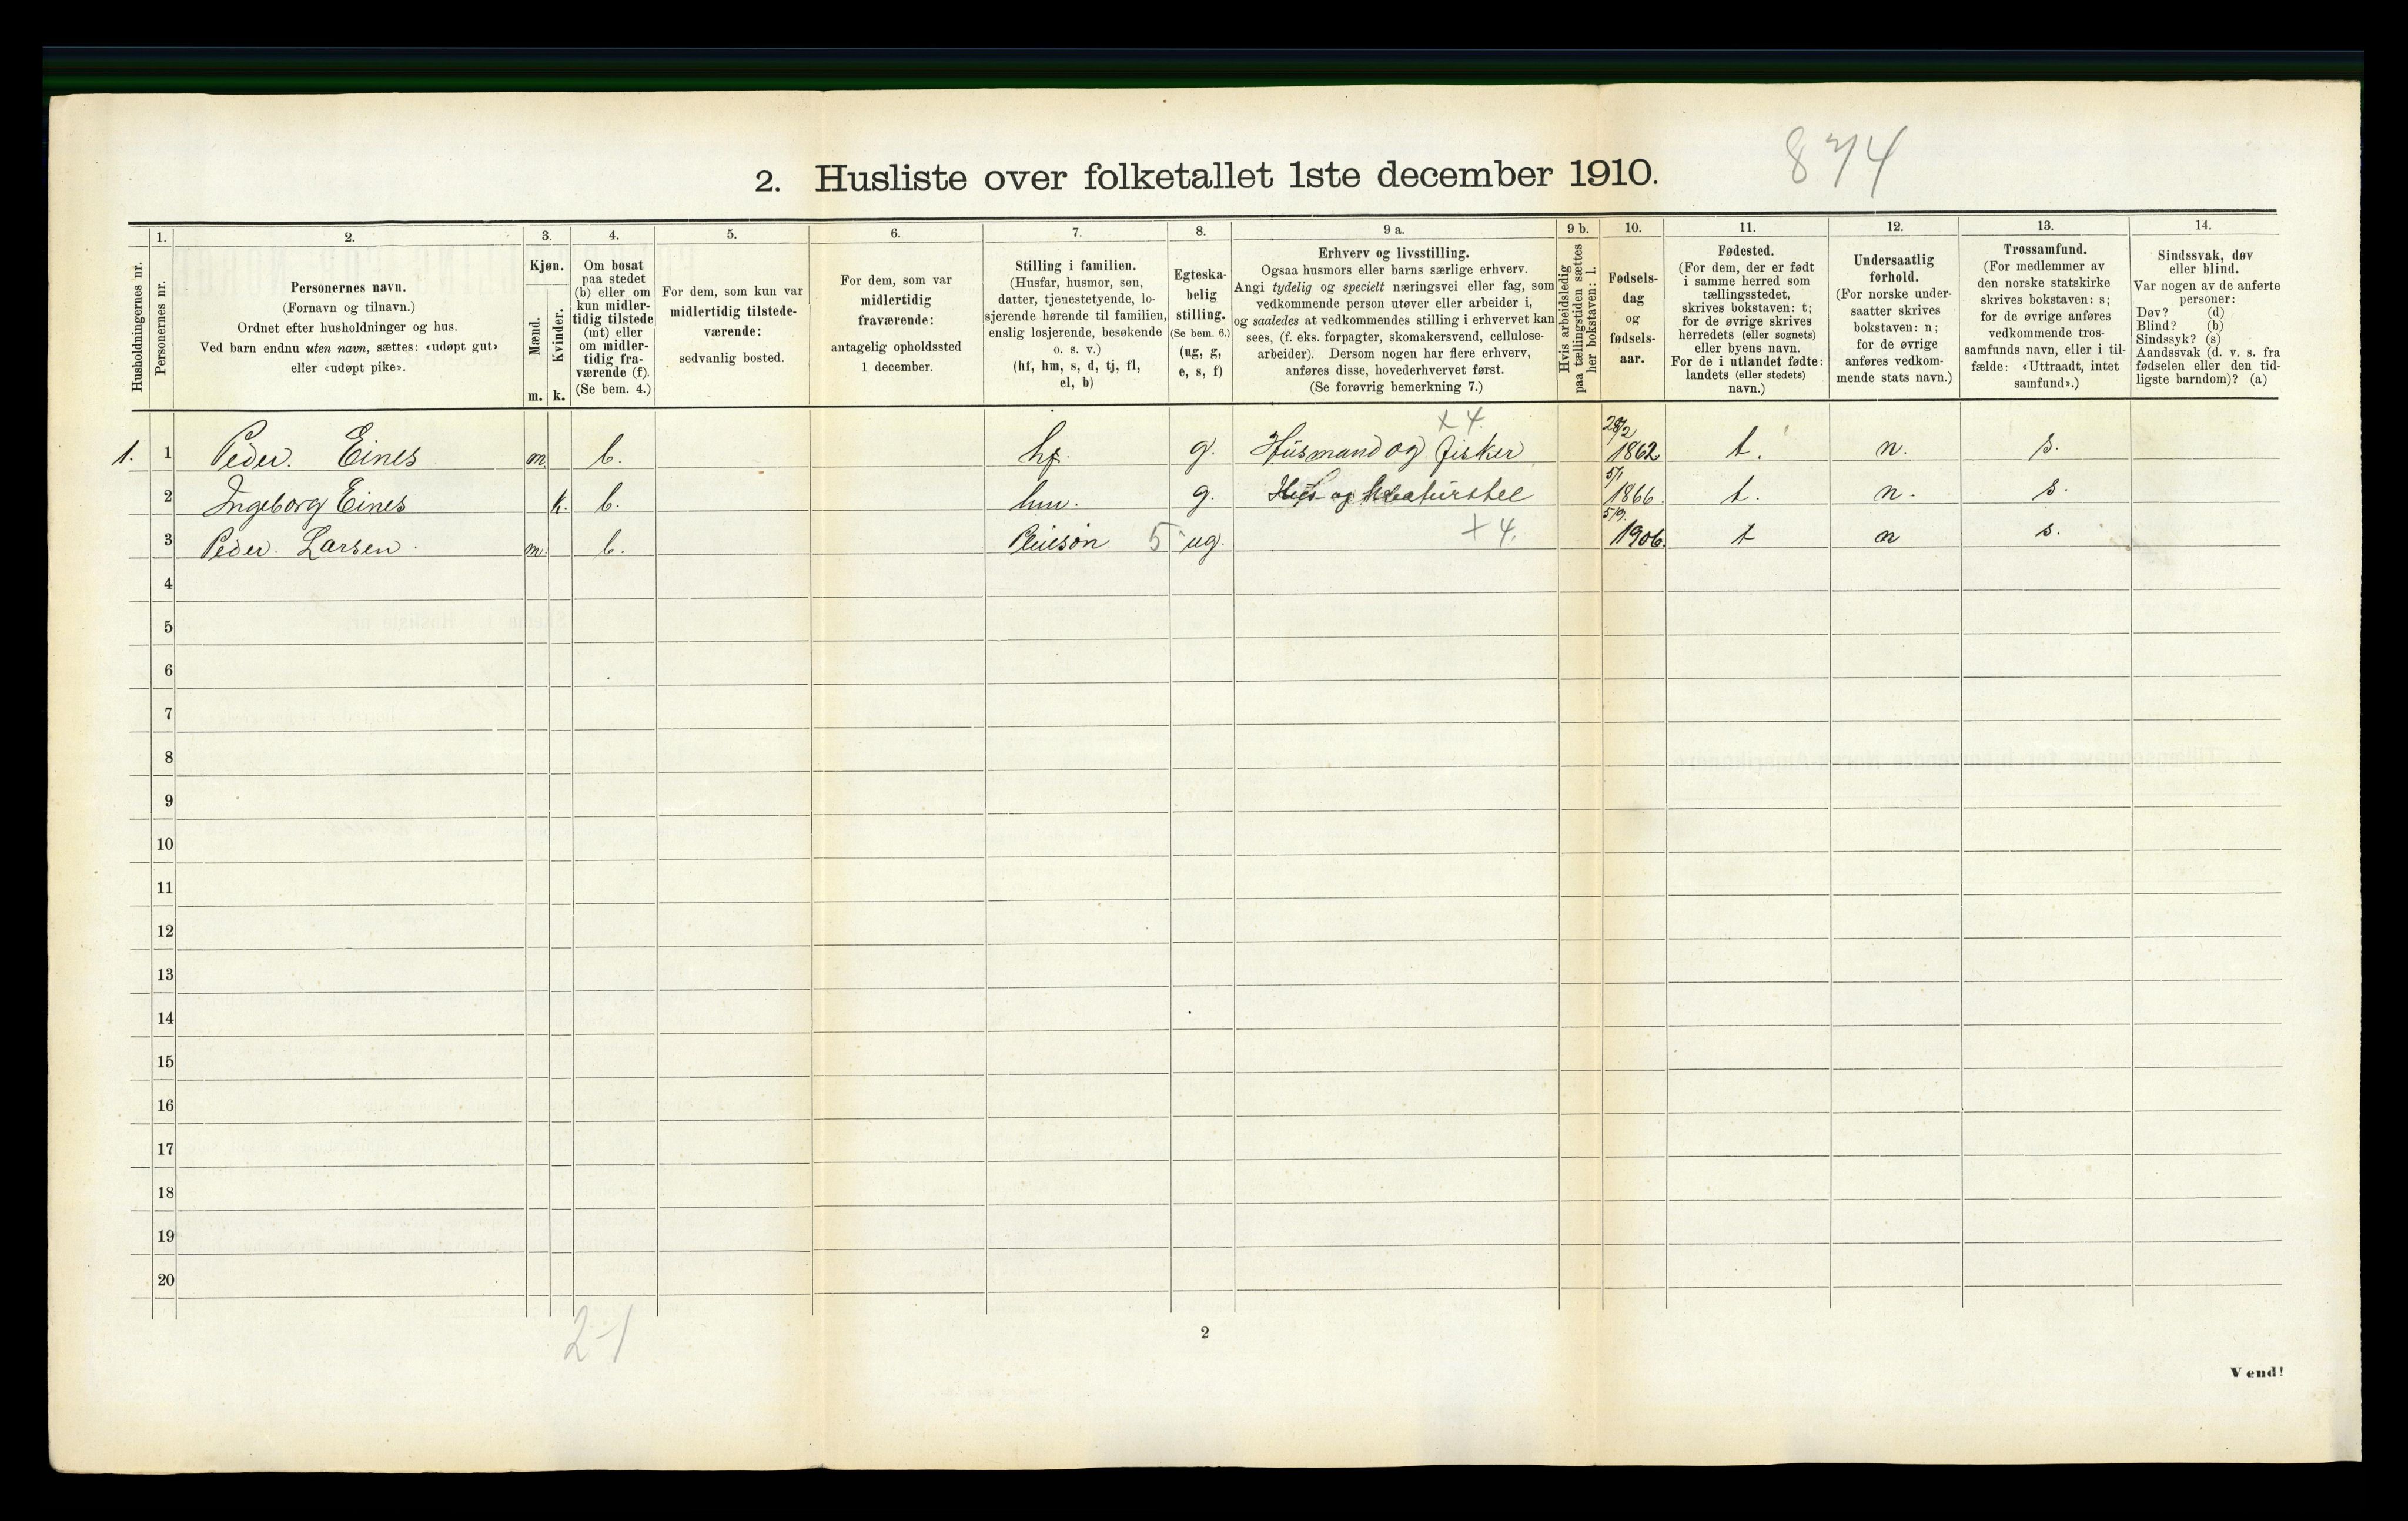 874
2. Husliste over folketallet 1ste december 1910.
Husholdningernes nr.
1.
Personernes nr.
2.
Personernes navn.
(Fornavn og tilnavn.)
Ordnet efter husholdninger og hus.
Ved barn endnu uten navn, sættes: «udøpt gut»
eller «udøpt pike».
3.
Kjøn.
Mænd.
Kvinder.
m. k.
4.
Om bosat
paa stedet
(b) eller om
kun midler-
tidig tilstede
(mt) eller
om midler-
tidig fra-
værende (f).
(Se bem. 4.)
5.
For dem, som kun var
midlertidig tilstede-
værende:
sedvanlig bosted.
6.
For dem, som var
midlertidig
fraværende:
antagelig opholdssted
1 december.
7.
Stilling i familien.
(Husfar, husmor, søn,
datter, tjenestetyende, lo-
sjerende hørende til familien,
enslig losjerende, besøkende
o. s. v.)
(hf, hm, s, d, tj, fl,
el, b)
8.
Egteska-
belig
stilling.
(Se bem. 6.)
(ug, g,
e, s, f)
9 a.
Erhverv og livsstilling.
Ogsaa husmors eller barns særlige erhverv.
Angi tydelig og specielt næringsvei eller fag, som
vedkommende person utøver eller arbeider i,
og saaledes at vedkommendes stilling i erhvervet kan
sees, (f. eks. forpagter, skomakersvend, cellulose-
arbeider). Dersom nogen har flere erhverv,
anføres disse, hovederhvervet først.
(Se forøvrig bemerkning 7.)
9 b.
Hvis arbeidsledig
paa tællingstiden sættes
her bokstaven: l.
10.
Fødsels-
dag
og
fødsels-
aar.
11.
Fødested.
(For dem, der er født
i samme herred som
tællingsstedet,
skrives bokstaven: t;
for de øvrige skrives
herredets (eller sognets)
eller byens navn.
For de i utlandet fødte:
landets (eller stedets)
navn.)
12.
Undersaatlig
forhold.
(For norske under-
saatter skrives
bokstaven: n;
for de øvrige
anføres vedkom-
mende stats navn.)
13.
Trossamfund.
(For medlemmer av
den norske statskirke
skrives bokstaven: s;
for de øvrige anføres
vedkommende tros-
samfunds navn, eller i til-
fælde: «Uttraadt, intet
samfund».)
14.
Sindssvak, døv
eller blind.
Var nogen av de anførte
personer:
Døv? (d)
Blind? (b)
Sindssyk? (s)
Aandssvak (d. v. s. fra
fødselen eller den tid-
ligste barndom)? (a)
1. 1 Peder. Eines m b. hf. g. Husmand og fisker x 4. 28/2 1862 t. n. s.
2 Ingeborg Eines k. b. hm. g. Hus- og Kreaturstel 5/1 1866. t. n. s.
3 Peder. Larsen. m. b. Pleiesøn 5 ug. x 4. 5/9. 1906. t n s.
4
5
6
7
8
9
10
11
12
13
14
15
16
17
18
19
20
2-1
2
Vend!